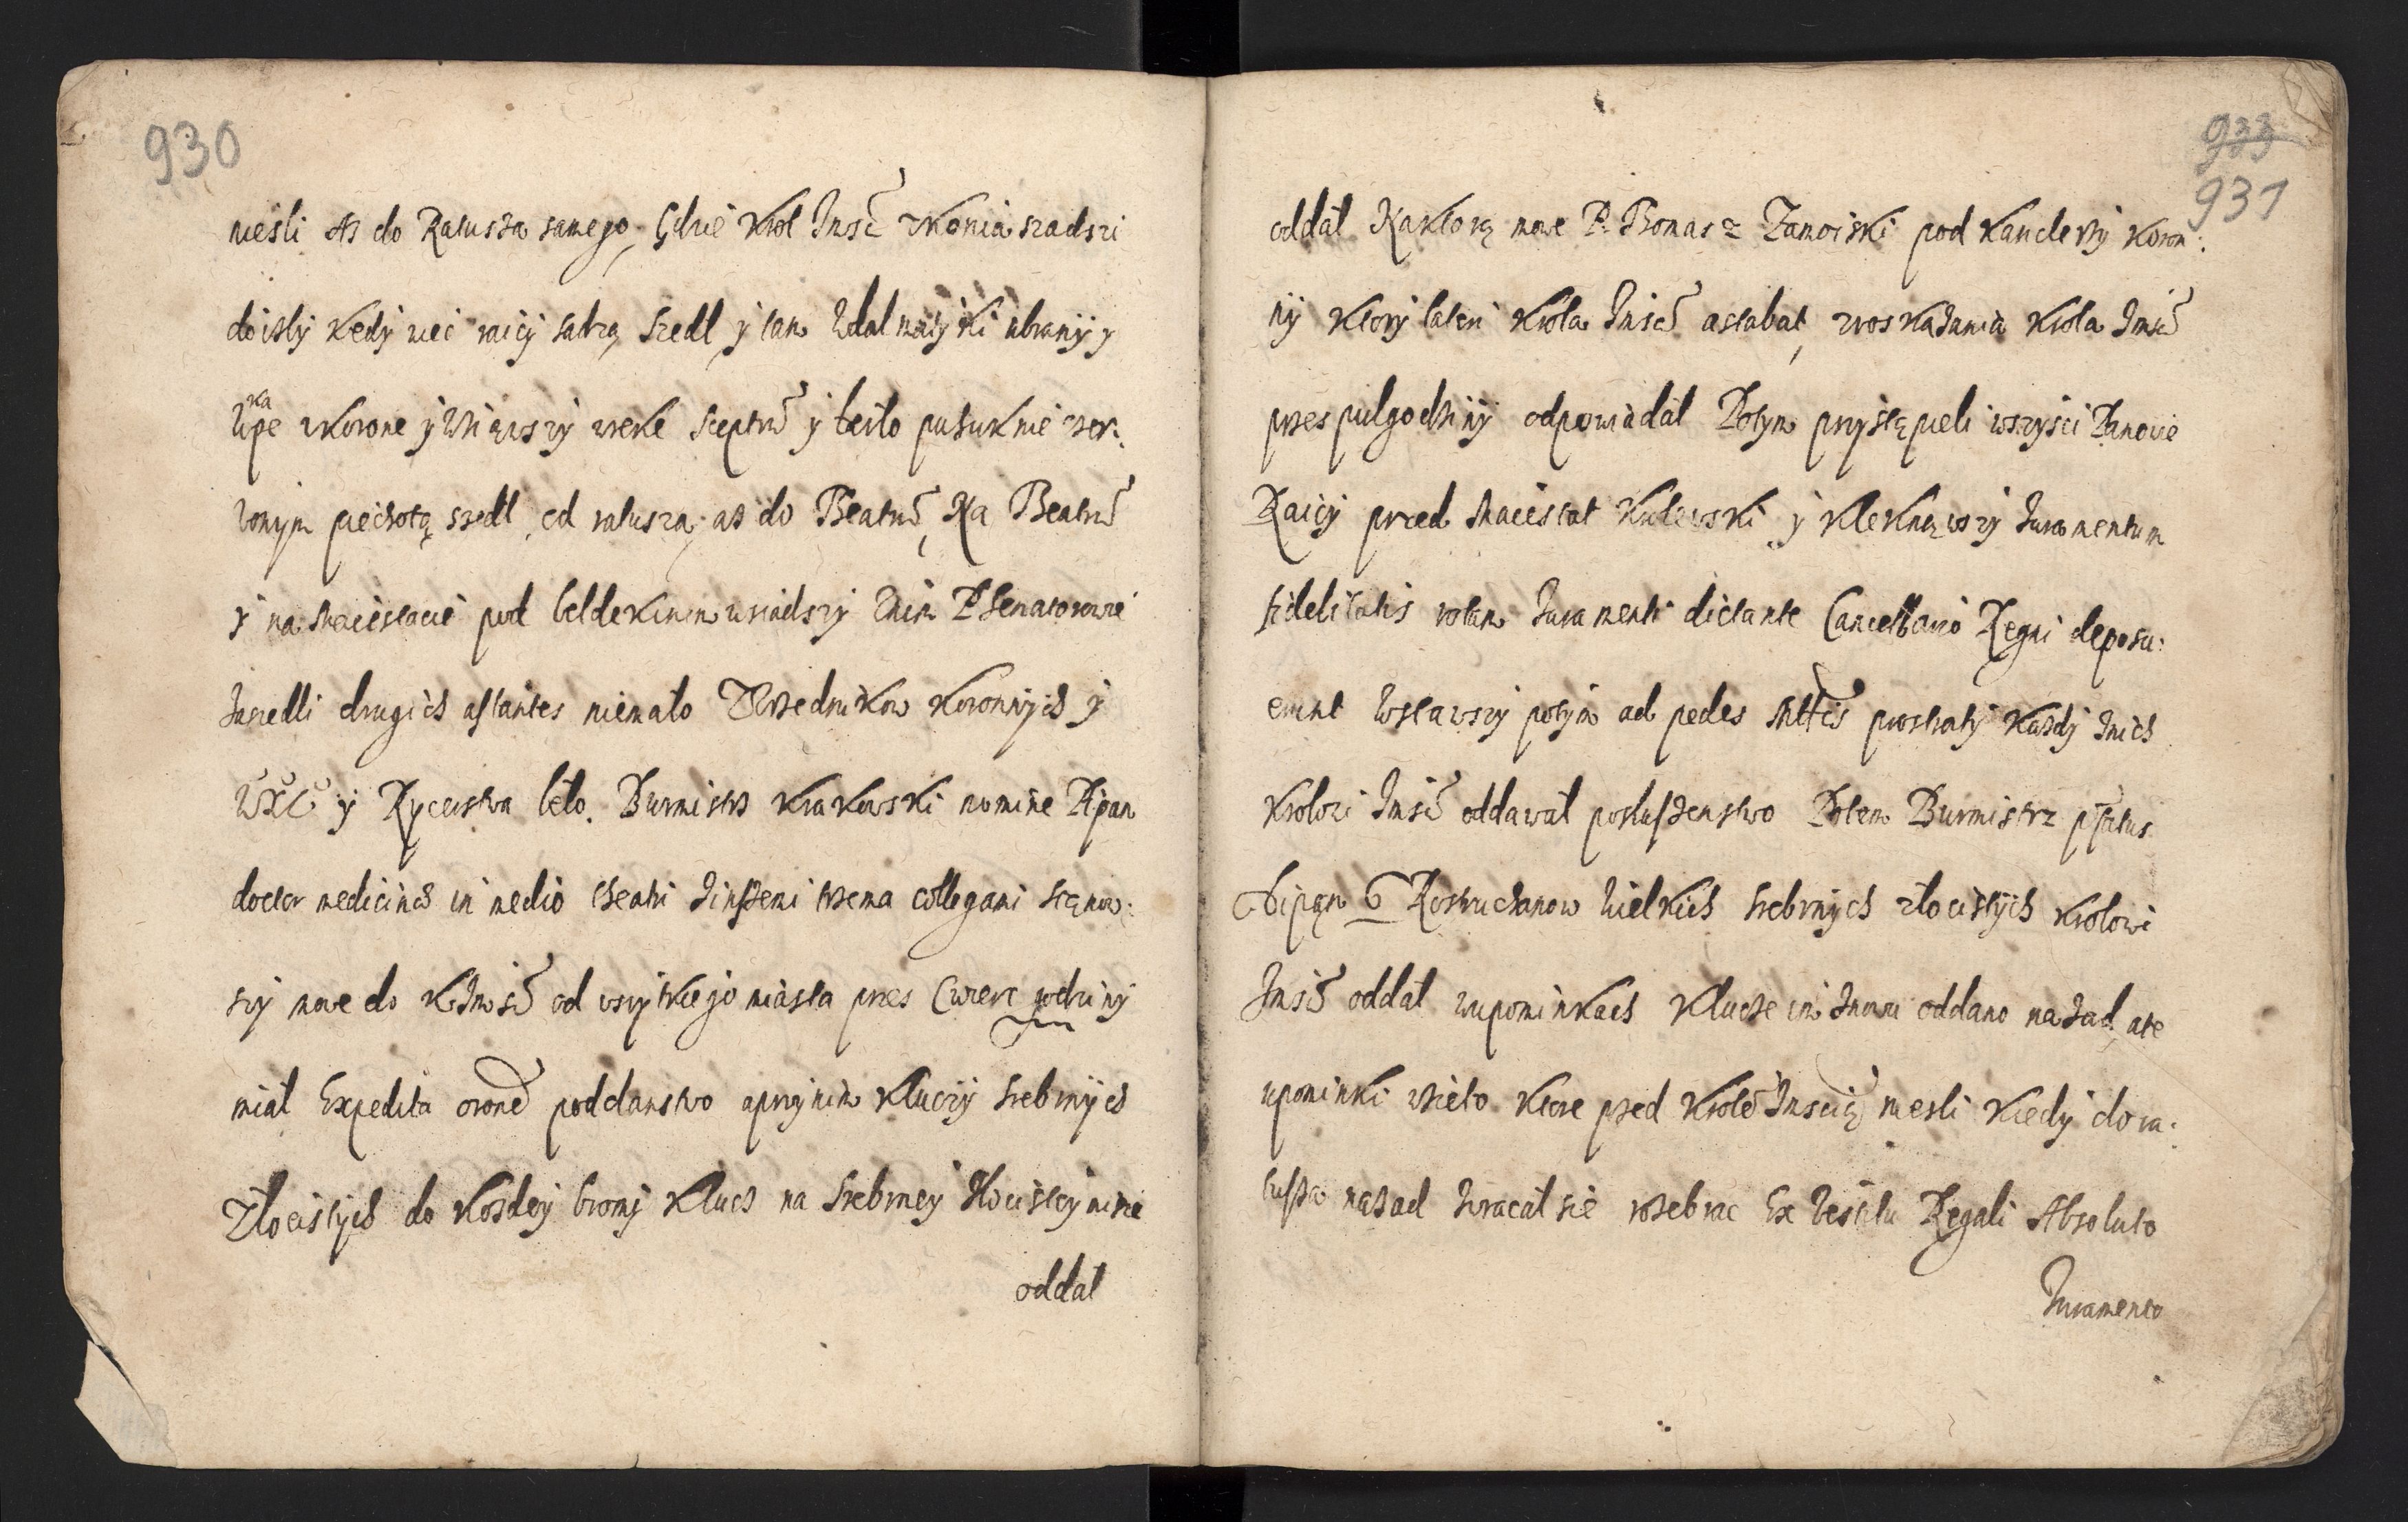 930
nieśli Asz do Ratusza samego, Gdzie Krol Jmść zkonia szadszi
do izby kedy wiec raicy sadzą szedl, y tam wdalmatyki ubrany y
w kapę wkorone y wziąwszy wreke sceptrū y berło pusuknie czer:
wonym piechotą szedl, od ratusza, asz do Theatrū, Na Theatrū
y na Maiestacie pod beldekinem usiadszy znim P Senatorowie
Zasiedli drugich astantes niemało Urzednikow koronnych y
WXL y Rycerstwa beło. Burmistrz Krakowski nomine Pipan
doctor medicinæ in medio theatri zinszemi trzema collegami stąnow:
szy mowe do KJmści od wszytkiego miasta przes Cwierc godziny
miał Expedita oroné poddanstwo aprzynim kluczy srebrnych
złocistych do kożdey brony klucz na srebrney złocistey misie
oddał
933
931
oddał Na ktorą mowe P. Thomasz Zamoiski pod kanclerzy koron:
ny ktory lateri krola Jmści astabat, zroskazania krola Jmści
przes pulgodziny odpowiadał Potym przystąpieli wszysci Panowie
Raicy przed Maiestat Krolewski y kleknąwszy Juramentum
fidelitatis rotam Juramenti dictante Cancellario Regni deposu:
erunt wstawszy potym ad pedes Mttis prostraty każdy znich
krolowi Jmści oddawał posłuszenstwo Potem Burmistrz pfatus
Pipąn 6 Rostruchanow wielkich srebrnych złocistych krolowi
Jmści oddał wupominkach klucze im znowu oddano nazad, ate
upominki wzieto ktore przed krolē Jmscią niesli kiedy do ra:
tusza nazad wracał sie rozebrac Ex vestitu Regali Absoluto
Juramento